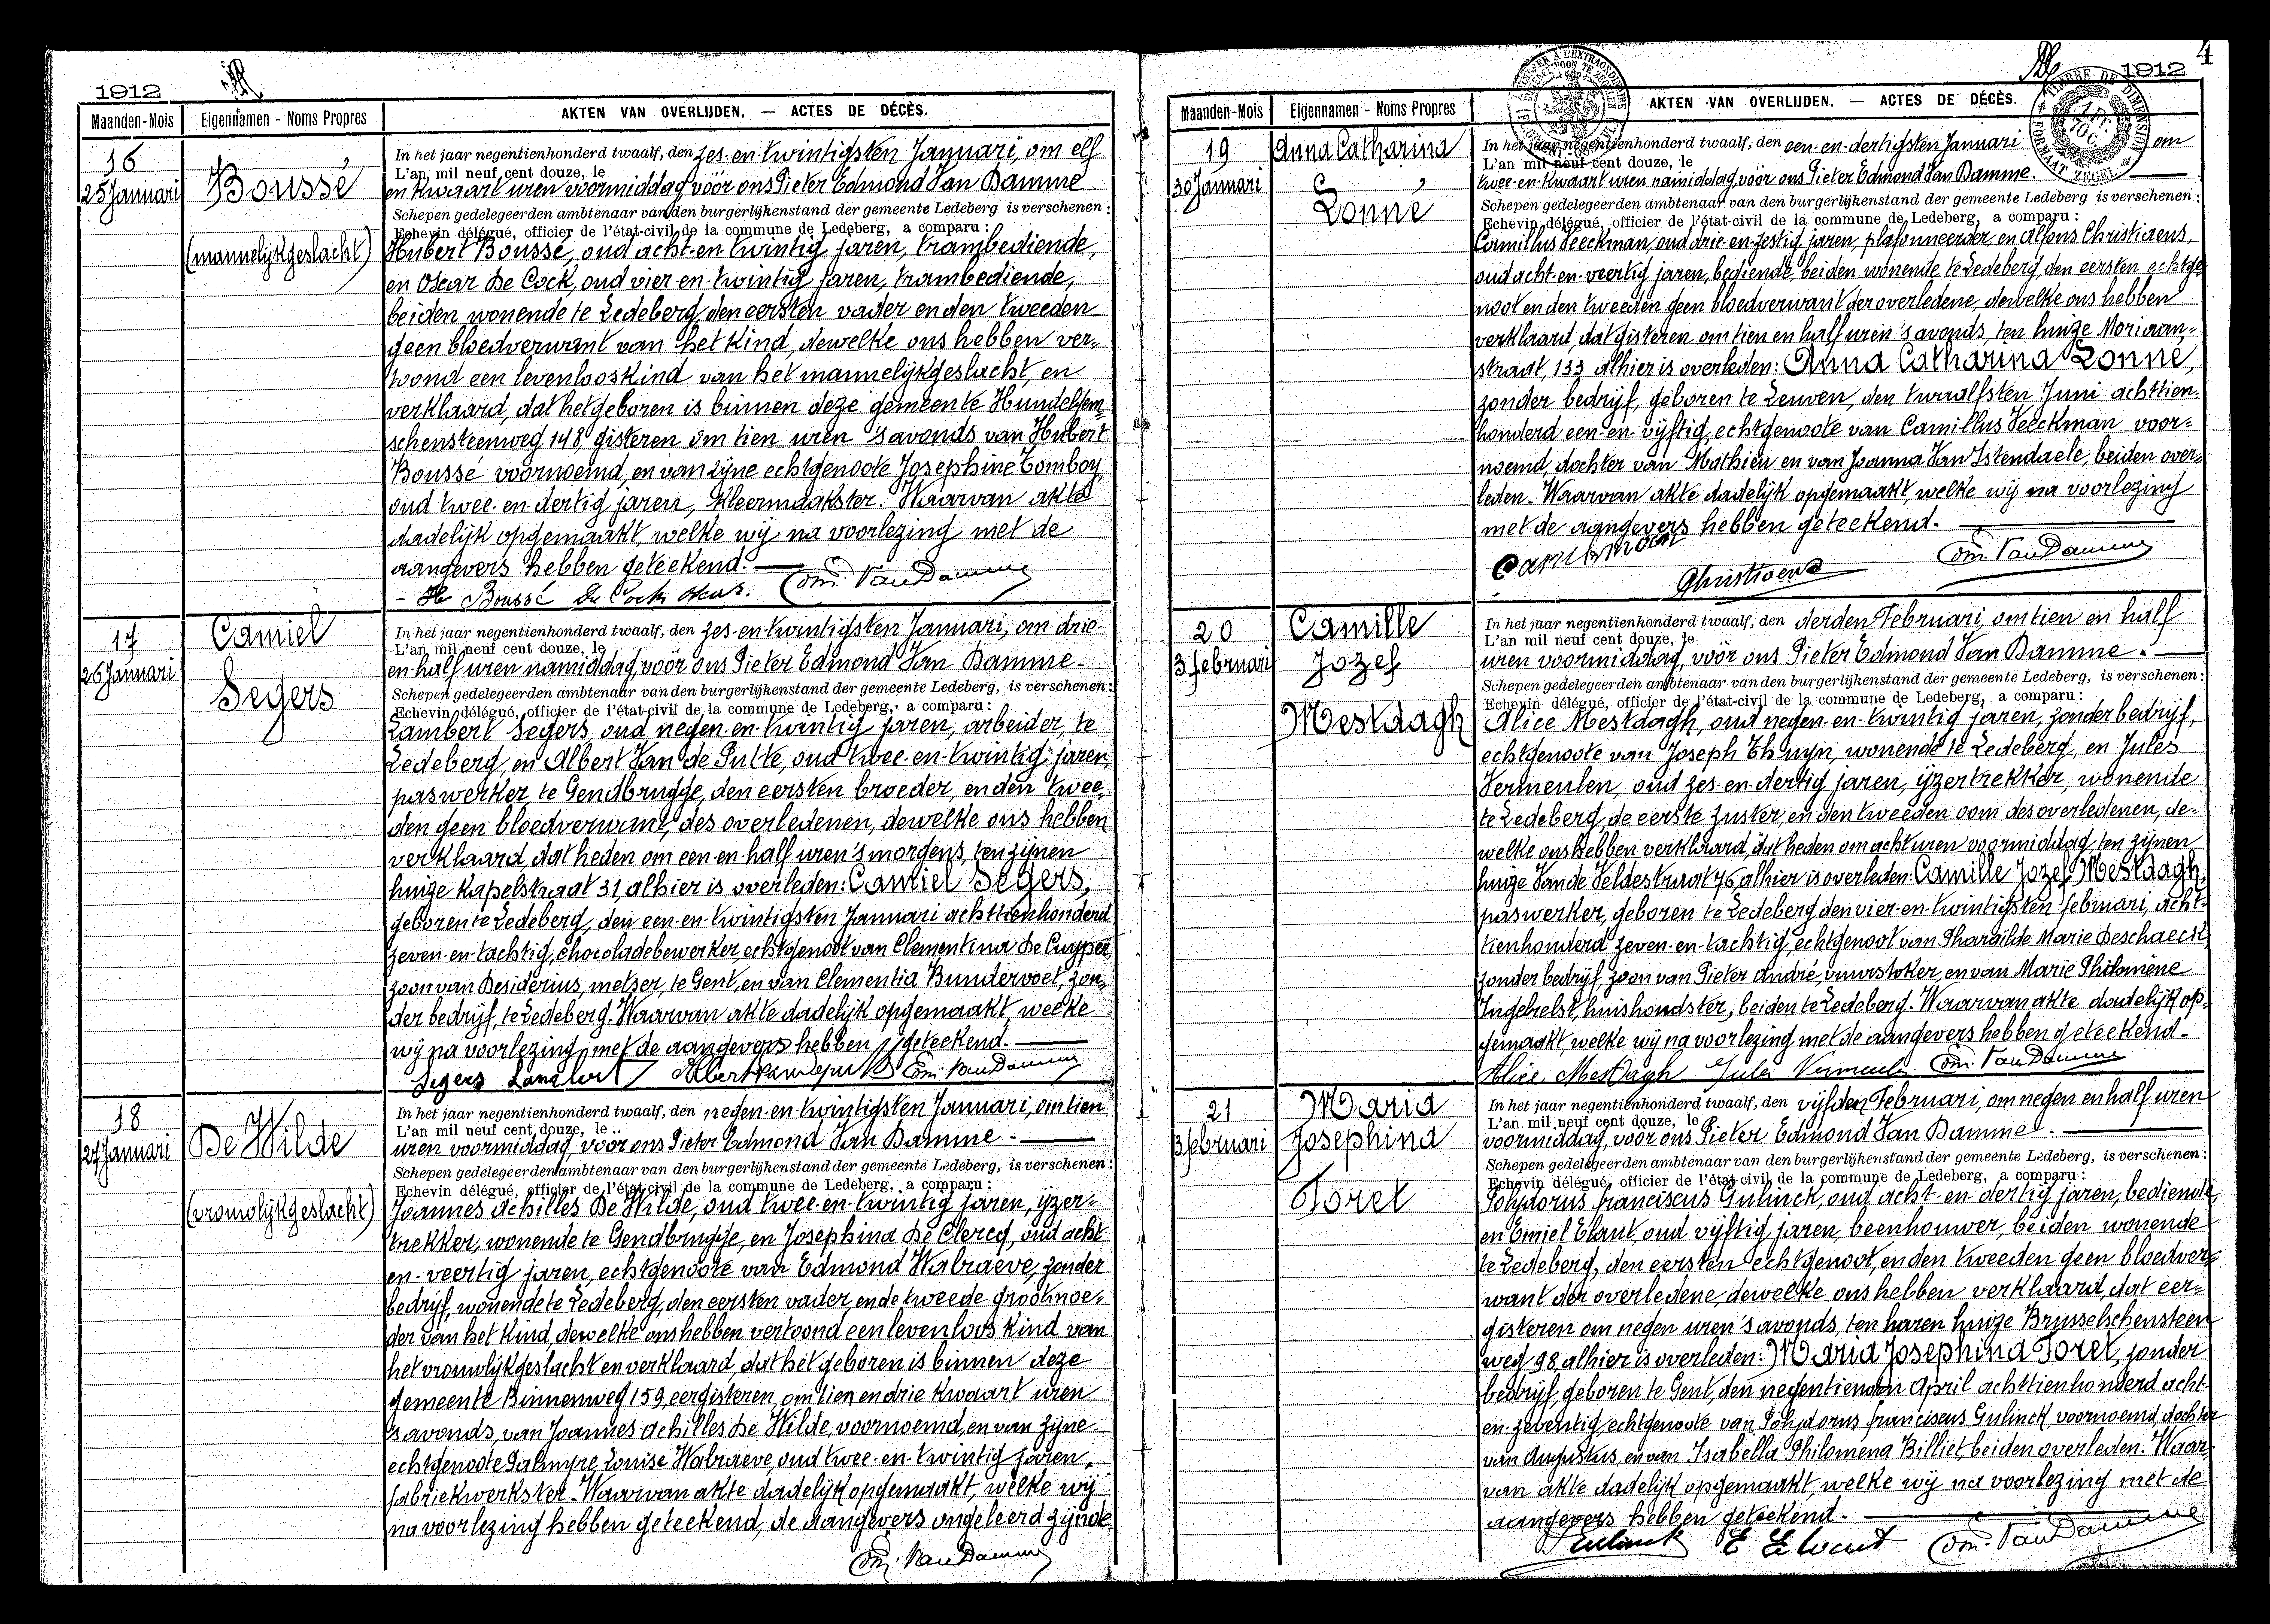 1912
Maanden-Mois Eigennamen - Noms Propres AKTEN VAN OVERLIJDEN. — ACTES DE DÉCÈS.
16
25 Januari
Boussé
(mannelijkgeslacht)
In het jaar negentienhonderd twaalf, den zes-en-twintigsten Januari, om elf
L'an mil neuf cent douze, le
en kwaart uren voormiddag vóór ons Pieter Edmond Van Damme
Schepen gedelegeerden ambtenaar van den burgerlijkenstand der gemeente Ledeberg is verschenen :
Echevin délégué, officier de l'état-civil de la commune de Ledeberg, a comparu :
Hubert Boussé, oud acht-en-twintig jaren, trambediende,
en Oscar De Cock, oud vier-en-twintig jaren, trambediende,
beiden wonende te Ledeberg, den eersten vader en den tweeden
geen bloedverwant van het kind, dewelke ons hebben ver-
toond een levenlooskind van het mannelijkgeslacht, en
verklaard, dat het geboren is binnen deze gemeente Hundelgem-
schensteenweg 148, gisteren om tien uren 's avonds van Hubert
Boussé voornoemd, en van zijne echtgenoote Josephine Tomboy,
oud twee-en-dertig jaren, kleermaakster. Waarvan akte
dadelijk opgemaakt, welke wij na voorlezing met de
aangevers hebben geteekend.
H Boussé De Cock Oscar. Edm. Van Damme
17
26 Januari
Camiel
Segers
In het jaar negentienhonderd twaalf, den zes-en-twintigsten Januari, om drie-
L'an mil neuf cent douze, le
en-half uren namiddag, vóór ons Pieter Edmond Van Damme-
Schepen gedelegeerden ambtenaar van den burgerlijkenstand der gemeente Ledeberg, is verschenen :
Echevin délégué, officier de l'état-civil de la commune de Ledeberg, a comparu :
Lambert Segers, oud negen-en-twintig jaren, arbeider, te
Ledeberg, en Albert Van de Putte, oud twee-en-twintig jaren,
paswerker, te Gendbrugge, den eersten broeder, en den twee-
den geen bloedverwant, des overledenen, dewelke ons hebben
verklaard, dat heden om een-en-half uren 's morgens, ten zijnen
huize Kapelstraat 31, alhier is overleden: Camiel Segers,
geboren te Ledeberg, den een-en-twintigsten Januari achttienhonderd
zeven-en-tachtig, chocoladebewerker, echtgenoot van Clementina De Cuyper,
zoon van Desiderius, metser, te Gent, en van Clementia Bundervoet, zon-
der bedrijf, te Ledeberg. Waarvan akte dadelijk opgemaakt, welke
wij na voorlezing met de aangevers hebben geteekend.
Segers Lambert Albert Van de Putte Edm. Van Damme
18
27 Januari
De Wilde
(vrouwlijkgeslacht)
In het jaar negentienhonderd twaalf, den negen-en-twintigsten Januari, om tien
L'an mil neuf cent douze, le
uren voormiddag, vóór ons Pieter Edmond Van Damme -
Schepen gedelegeerden ambtenaar van den burgerlijkenstand der gemeente Ledeberg, is verschenen :
Echevin délégué, officier de l'état-civil de la commune de Ledeberg, a comparu :
Joannes Achilles De Wilde, oud twee-en-twintig jaren, ijzer-
trekker, wonende te Gendbrugge, en Josephina De Clercq, oud acht
en-veertig jaren, echtgenoote van Edmond Walraeve, zonder
bedrijf, wonende te Ledeberg, den eersten vader, en de tweede grootmoe-
der van het kind, dewelke ons hebben vertoond een levenloos kind van
het vrouwlijkgeslacht en verklaard, dat het geboren is binnen deze
gemeente Binnenweg 159, eergisteren, om tien en drie kwaart uren
's avonds, van Joannes Achilles De Wilde, voornoemd, en van zijne
echtgenoote Palmyre Louise Walraeve, oud twee-en-twintig jaren,
fabriekwerkster. Waarvan akte dadelijk opgemaakt, welke wij
na voorlezing hebben geteekend, de aangevers ongeleerd zijnde
Edm. Van Damme
4
1912
Maanden-Mois Eigennamen - Noms Propres AKTEN VAN OVERLIJDEN. — ACTES DE DÉCÈS.
TIMBRE DE DIMENSION
FORMAAT ZEGEL
19
30 Januari
Anna Catharina
Lonné
In het jaar negentienhonderd twaalf, den een-en-dertigsten Januari om
L'an mil neuf cent douze, le
twee-en-kwaart uren namiddag vóór ons Pieter Edmond Van Damme.
Schepen gedelegeerden ambtenaar van den burgerlijkenstand der gemeente Ledeberg is verschenen :
Echevin délégué, officier de l'état-civil de la commune de Ledeberg, a comparu :
Camillus Veeckman, oud drie-en-zestig jaren, plafonneerder en Alfons Christiaens,
oud acht-en-veertig jaren, bediende, beiden wonende te Ledeberg, den eersten echtge-
noot en den tweeden geen bloedverwant der overledene, dewelke ons hebben
verklaard, dat gisteren om tien en half uren 's avonds, ten huize Moriaan-
straat, 133 alhier is overleden: Anna Catharina Lonné,
zonder bedrijf, geboren te Leuven, den twaalfsten Juni achttien-
honderd een-en-vijftig, echtgenoote van Camillus Veeckman voor-
noemd, dochter van Mathieu en van Joanna Van Istendaele, beiden over-
leden. Waarvan akte dadelijk opgemaakt, welke wij na voorlezing
met de aangevers hebben geteekend.
Christiaens Edm. Van Damme
20
3 februari
Camille
Jozef
Mestdagh
In het jaar negentienhonderd twaalf, den derden Februari, om tien en half
L'an mil neuf cent douze, le
uren voormiddag, vóór ons Pieter Edmond Van Damme.
Schepen gedelegeerden ambtenaar van den burgerlijkenstand der gemeente Ledeberg, is verschenen :
Echevin délégué, officier de l'état-civil de la commune de Ledeberg, a comparu :
Alice Mestdagh, oud negen-en-twintig jaren, zonder bedrijf,
echtgenoote van Joseph Thuyn, wonende te Ledeberg, en Jules
Vermeulen, oud zes-en-dertig jaren, ijzertrekker, wonende
te Ledeberg, de eerste zuster, en den tweeden oom des overledenen, de-
welke ons hebben verklaard, dat heden om acht uren voormiddag, ten zijnen
huize Van de Veldestraat 76, alhier is overleden: Camille Jozef Mestdagh,
paswerker, geboren te Ledeberg, den vier-en-twintigsten februari, acht-
tienhonderd zeven-en-tachtig, echtgenoot van Pharaïlde Marie Deschaecht
zonder bedrijf, zoon van Pieter André, vuurstoker, en van Marie Philomène
Ingebelst, huishoudster, beiden te Ledeberg. Waarvan akte dadelijk op-
gemaakt, welke wij na voorlezing met de aangevers hebben geteekend.
Alice Mestdagh Jules Vermeulen Edm. Van Damme
21
3 februari
Maria
Josephina
Foret
In het jaar negentienhonderd twaalf, den vijfden Februari, om negen en half uren
L'an mil neuf cent douze, le
voormiddag, vóór ons Pieter Edmond Van Damme.
Schepen gedelegeerden ambtenaar van den burgerlijkenstand der gemeente Ledeberg, is verschenen :
Echevin délégué, officier de l'état-civil de la commune de Ledeberg, a comparu :
Polydorus franciscus Gulinck, oud acht-en-dertig jaren, bediende,
en Emiel Elaut, oud vijftig jaren, beenhouwer, beiden wonende
te Ledeberg, den eersten echtgenoot, en den tweeden geen bloedver-
want der overledene, dewelke ons hebben verklaard, dat eer-
gisteren om negen uren 's avonds, ten haren huize Brusselschensteen
weg 98, alhier is overleden: Maria Josephina Foret, zonder
bedrijf, geboren te Gent, den negentienden April achttienhonderd acht-
en-zeventig, echtgenoote van Polydorus franciscus Gulinck, voornoemd, dochter
van Augustus, en van Isabella Philomena Billiet, beiden overleden. Waar-
van akte dadelijk opgemaakt, welke wij na voorlezing met de
aangevers hebben geteekend.
Gulinck E Elaut Edm. Van Damme